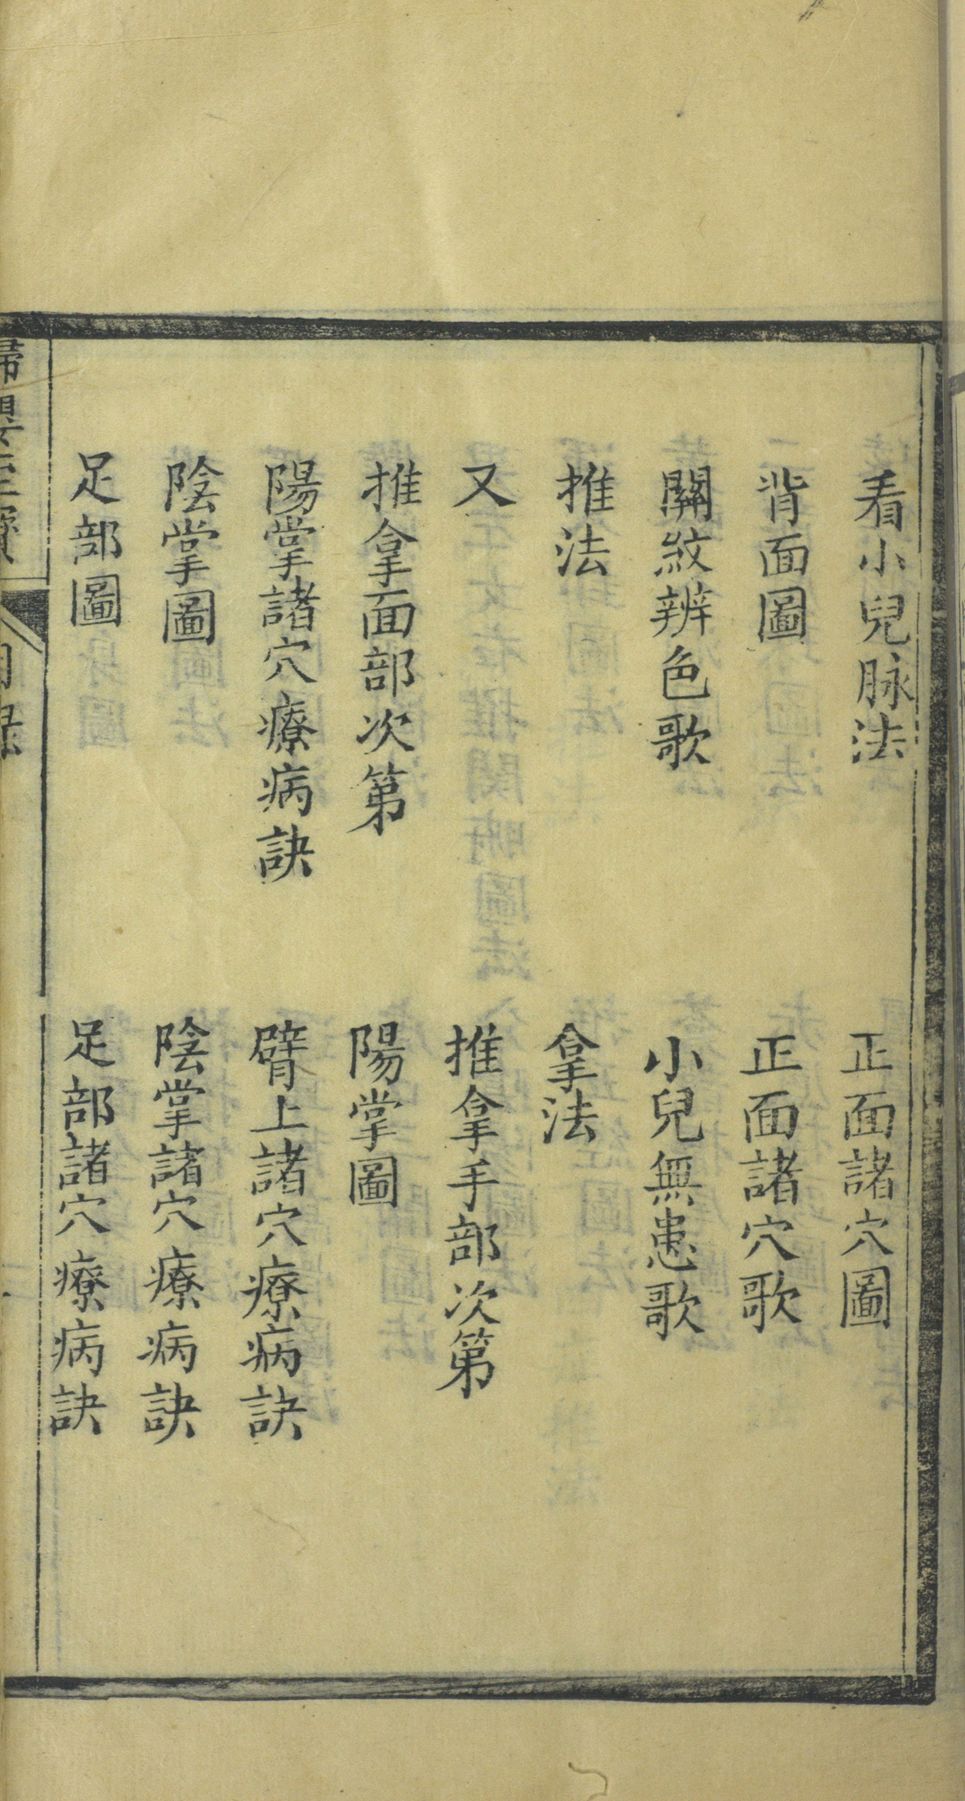 看小兒脉法 正面諸穴圖
背面圖 正面諸穴歌
關紋辨色歌 小兒無患歌
推法 拿法
又 推拿手部次第
推拿面部次第 陽掌圖
陽掌諸穴療病訣 臂上諸穴療病訣
陰掌圖 陰掌諸穴療病訣
足部圖 足部諸穴療病訣